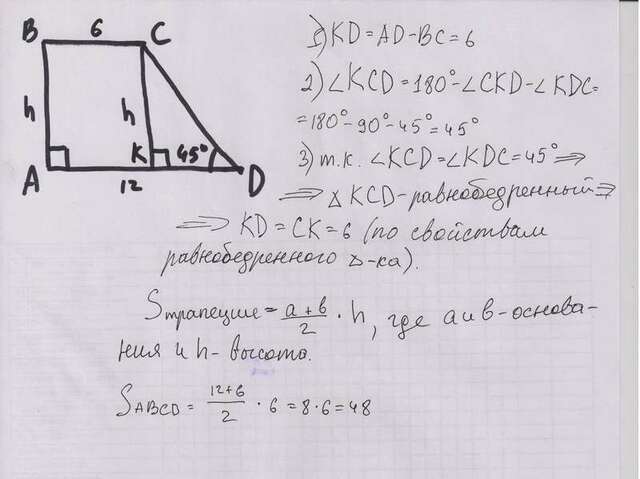 B 6 C
h h
K 45°
A 12 D
1) KD = AD - BC = 6
2) ∠KCD = 180° - ∠CKD - ∠KDC =
= 180° - 90° - 45° = 45°
3) т.к. ∠KCD = ∠KDC = 45° ⇒
⇒ △ KCD - равнобедренный ⇒
⇒ KD = CK = 6 (по свойствам
равнобедренного △-ка).
Sтрапеции = (a + в)/2 · h, где a и в - основа-
ния и h - высота.
SABCD = (12+6)/2 · 6 = 8 · 6 = 48